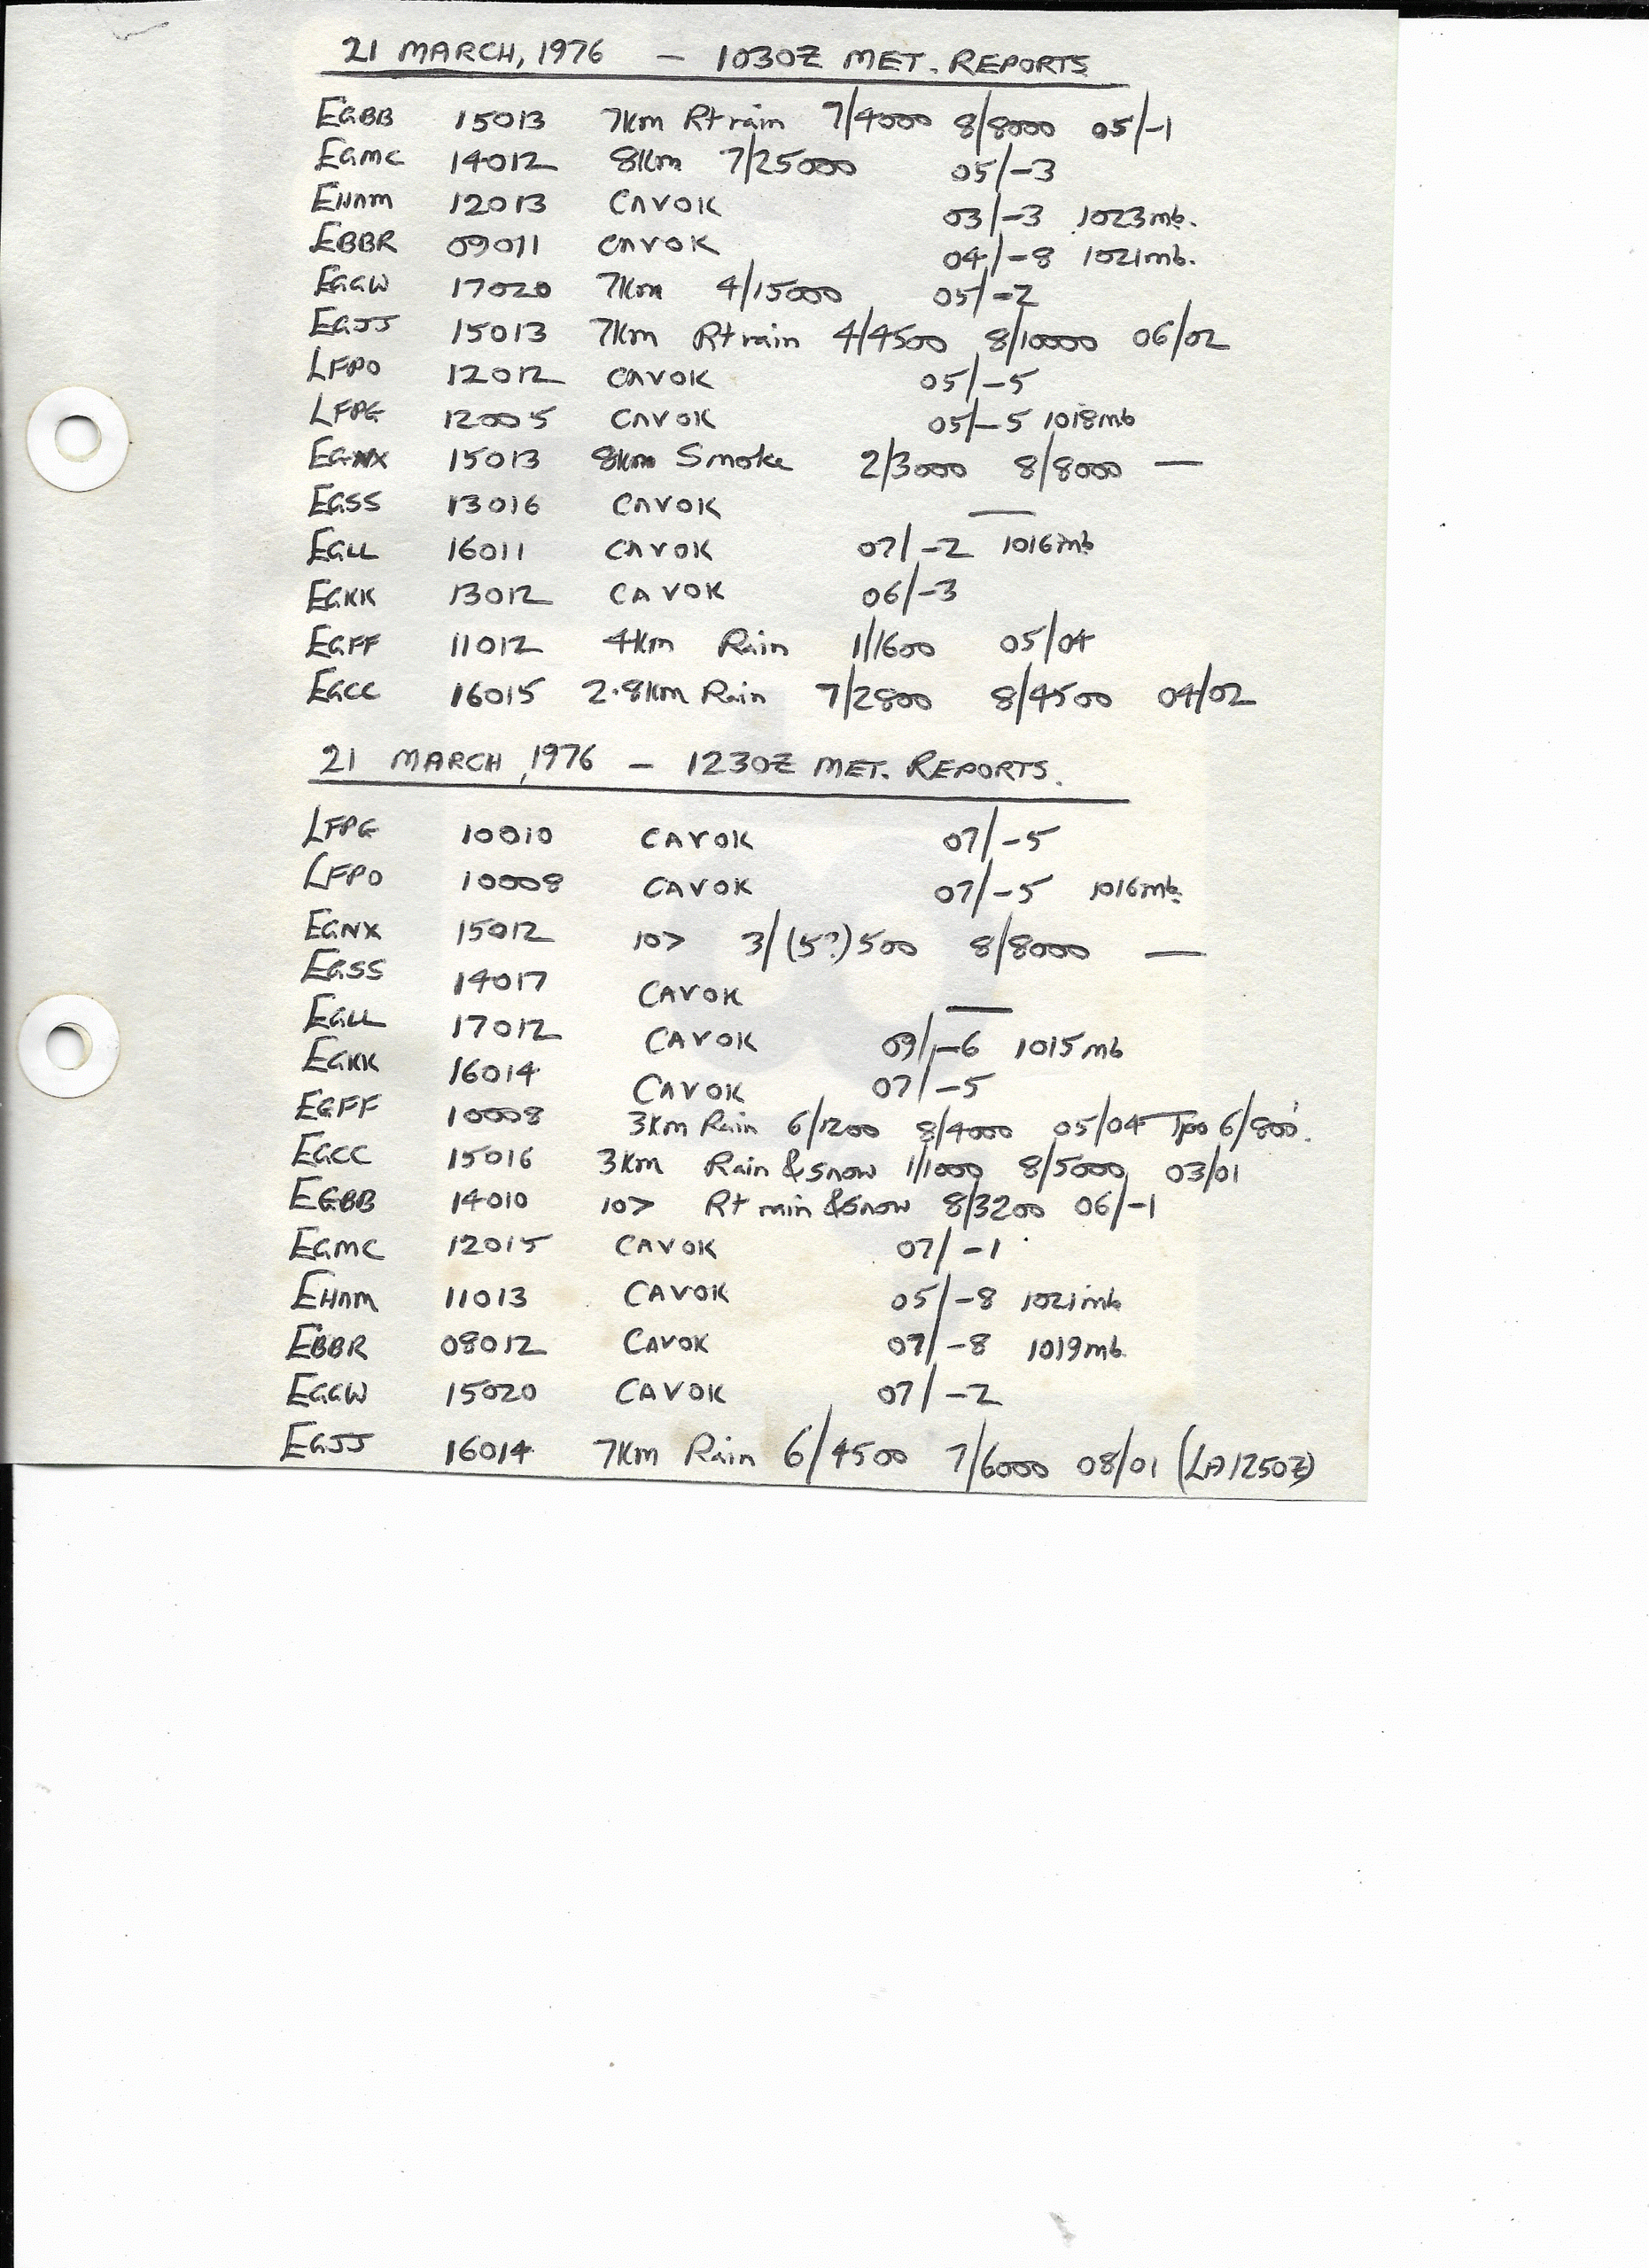 21 MARCH, 1976 — 1030Z MET. REPORTS
EGBB 15013 7Km R+rain 7/4000 8/8000 05/-1
EGMC 14012 8Km 7/25000 05/-3
EHAM 12013 CAVOK 03/-3 1023mb.
EBBR 09011 CAVOK 04/-8 1021mb.
EGGW 17020 7Km 4/15000 05/-2
EGJJ 15013 7Km R+rain 4/4500 8/10000 06/02
LFPO 12012 CAVOK 05/-5
LFPG 12005 CAVOK 05/-5 1018mb
EGNX 15013 8km Smoke 2/3000 8/8000 —
EGSS 13016 CAVOK —
EGLL 16011 CAVOK 07/-2 1016mb
EGKK 13012 CAVOK 06/-3
EGFF 11012 4Km Rain 1/1600 05/04
EGCC 16015 2.8Km Rain 7/2800 8/4500 04/02
21 MARCH, 1976 — 1230Z MET. REPORTS.
LFPG 10010 CAVOK 07/-5
LFPO 10008 CAVOK 07/-5 1016mb.
EGNX 15012 10> 3/(5?)500 8/8000 —
EGSS 14017 CAVOK —
EGLL 17012 CAVOK 09/-6 1015mb
EGKK 16014 CAVOK 07/-5
EGFF 10008 3Km Rain 6/1200 8/4000 05/04 Tpo 6/800'.
EGCC 15016 3Km Rain & Snow 1/1000 8/5000 03/01
EGBB 14010 10> R+ rain & Snow 8/3200 06/-1
EGMC 12015 CAVOK 07/-1
EHAM 11013 CAVOK 05/-8 1021mb
EBBR 08012 CAVOK 07/-8 1019mb.
EGGW 15020 CAVOK 07/-2
EGJJ 16014 7Km Rain 6/4500 7/6000 08/01 (LA1250Z)